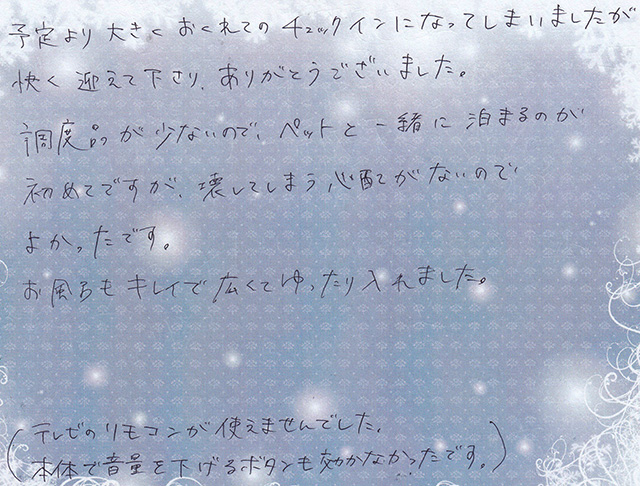 予定より大きくおくれてのチェックインになってしまいましたが
快く迎えて下さり、ありがとうございました。
調度品が少ないので、ペットと一緒に泊まるのが
初めてですが、壊してしまう心配がないので
よかったです。
お風呂もキレイで広くてゆったり入れました。
(テレビのリモコンが使えませんでした。
本体で音量を下げるボタンも効かなかったです。)